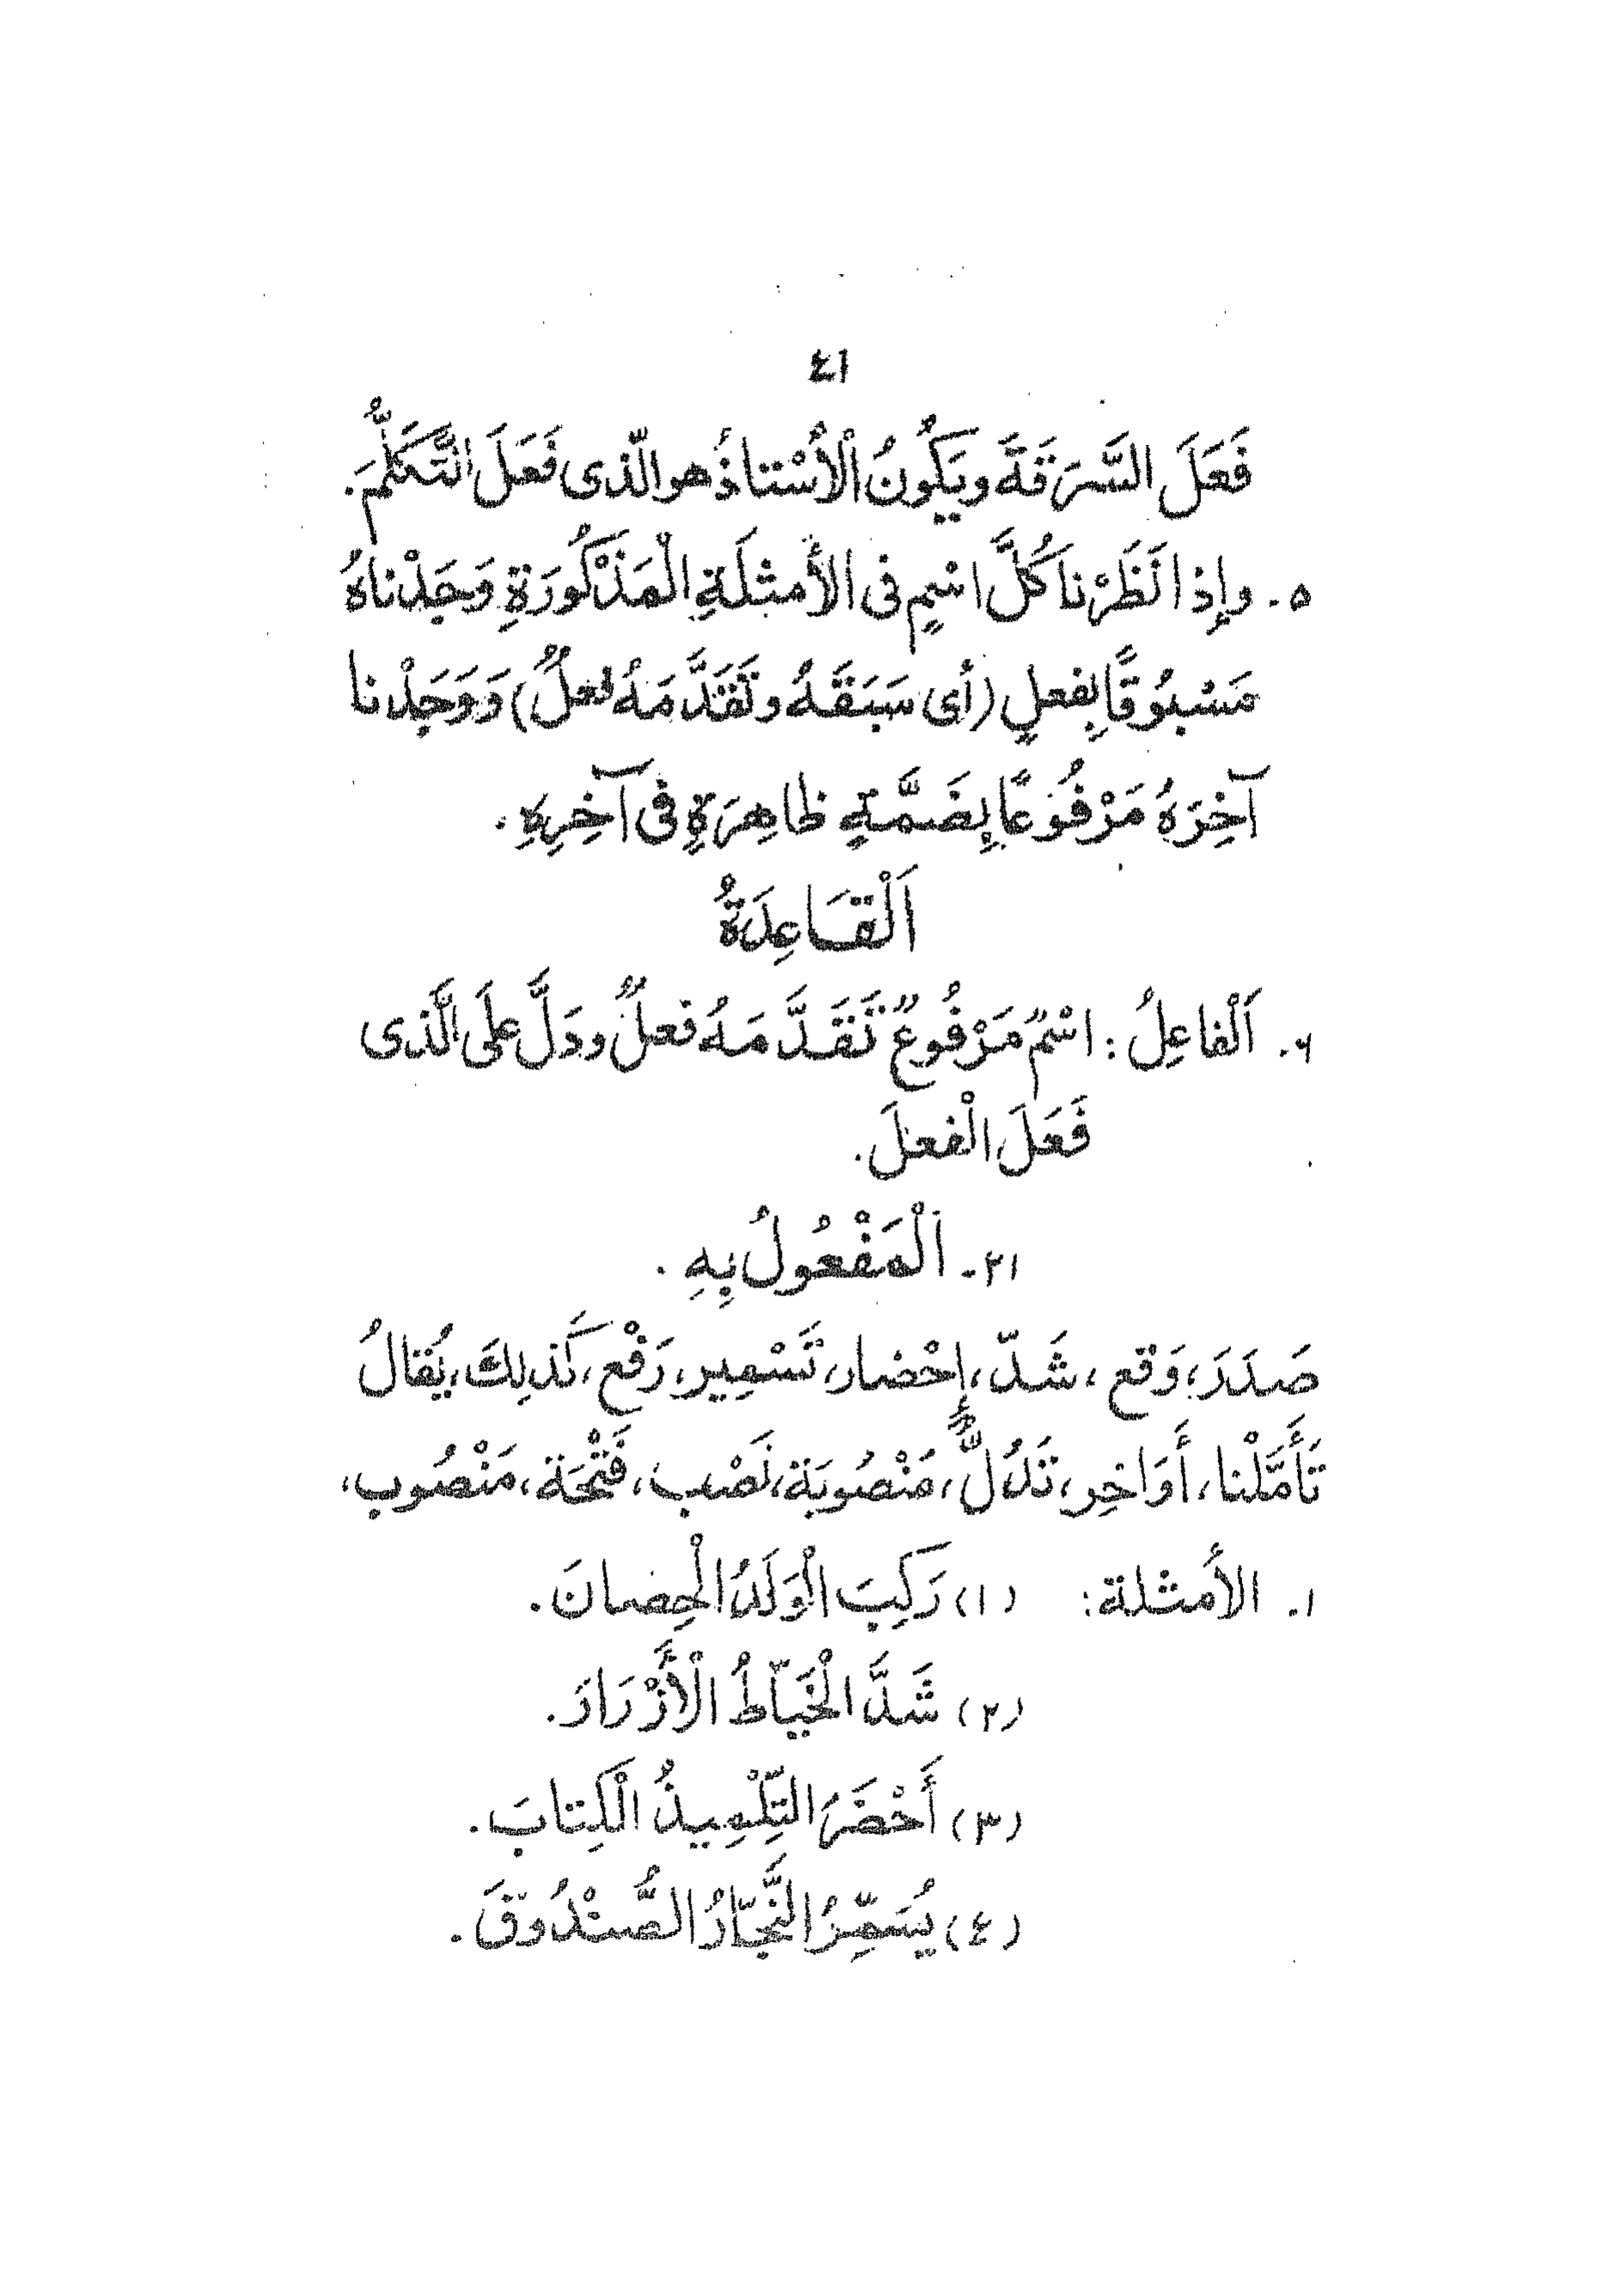 ٤١
فَعَلَ السَّرَقَةَ ويَكُونُ الْأُسْتاذُ هو الّذى فَعَلَ التَّكَلُّمَ.
٥. وإِذا نَظَرْنا كُلَّ اسْمٍ فى الأَمثلَةِ الْمَذْكُورَةِ وَجَدْناهُ
مَسْبُوقًا بِفعلٍ (أى سَبَقَهُ وتَقَدَّمَهُ فعلٌ) وَوَجَدْنا
آخِرَهُ مَرْفُوعًا بِضَمَّةٍ ظاهِرَةٍ فى آخِرِهِ.
اَلْقَاعِدَةُ
٦. اَلْفاعِلُ: اسْمٌ مَرْفُوعٌ تَقَدَّمَهُ فعلٌ ودَلَّ عَلَى الَّذى
فَعَلَ الْفعلَ.
٢١. اَلْمَفْعُولُ بِهِ.
صَدَرَ، وَقع، شَدّ، إِحْضار، تَسْمِير، رَفْع، كَذلِكَ، يُقالُ
تَأَمَّلْنا، أَوَاخِر، تَدُلُّ، مَنْصُوبَة، نَصْب، فَتْحَة، مَنْصُوب،
١. الأَمثلة: (١) رَكِبَ الْوَلَدُ الْحِصانَ.
(٢) شَدَّ الْخَيّاطُ الْأَزْرَارَ.
(٣) أَحْضَرَ التِّلْمِيذُ الْكِتابَ.
(٤) يُسَمِّرُ النَّجّارُ الصُّنْدُوقَ.